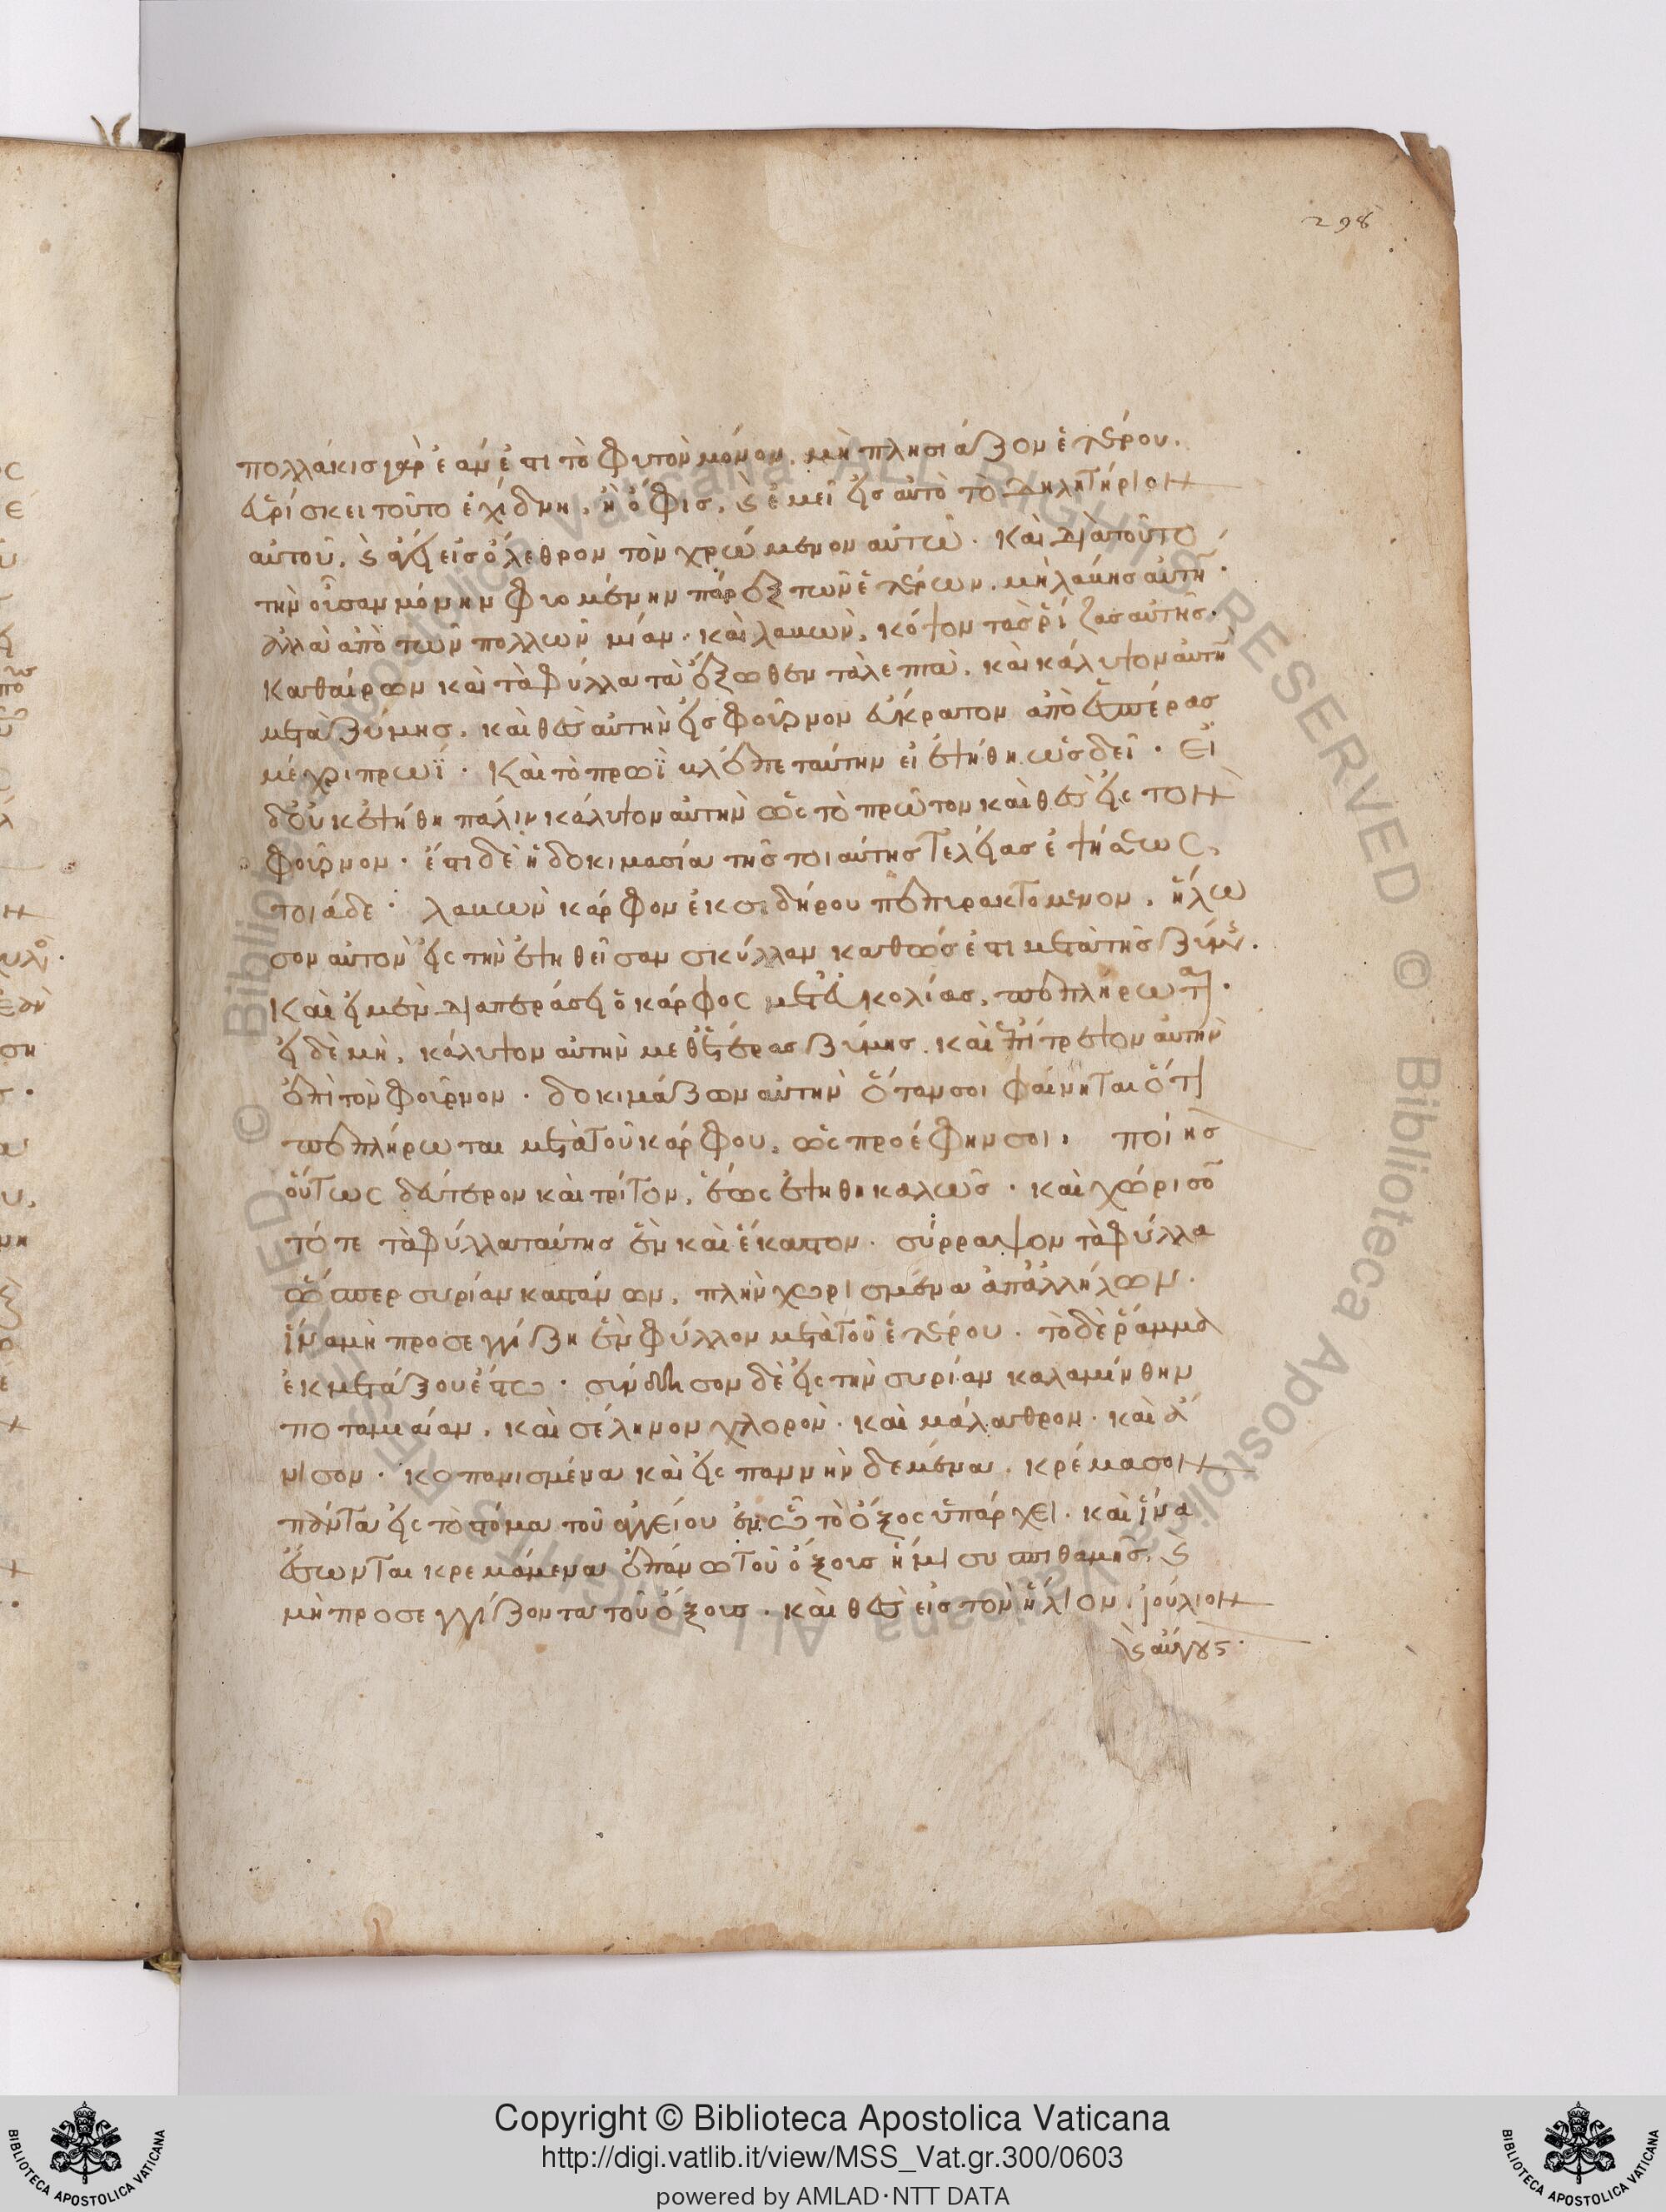 298
πολλάκις γὰρ ἐὰν ἔστι τὸ φυτὸν μόνον, μὴ πλησιάζον ἑτέρου.
εὑρίσκει τοῦτο ἔχιδνη, ἢ ὄφις, ϛ ἐμεῖ εἰς αὐτὸ τὸ δηλητήριον
αὐτοῦ, ϛ ἄγει εἰς ὄλεθρον τὸν χρώμενον αὐτῶ. καὶ διὰ τοῦτο
τὴν οὖσαν μόνην φυομένην πάρεξ τῶν ἑτέρων, μὴ λάβης αὐτήν.
ἀλλὰ ἀπὸ τῶν πολλῶν μίαν. καὶ λαβὼν, κόψον τὰς ῥίζας αὐτῆς.
καθαίρων καὶ τὰ φύλλα τὰ ἔξωθεν τὰ λεπτὰ. καὶ κάλυψον αὐτὴν
μετὰ ζύμης. καὶ θὲς αὐτὴν εἰς φοῦρνον ἄκρατον ἀπὸ ἑσπέρας
μέχρι πρωΐ. καὶ τὸ πρωῒ βλέπε ταύτην εἰ ἐψήθη ὡς δεῖ. εἰ
δ' οὐκ ἐψήθη πάλιν κάλυψον αὐτὴν ὡς τὸ πρῶτον καὶ θὲς εἰς τὸν
φοῦρνον. ἔστι δὲ ἡ δοκιμασία τῆς τοιαύτης τελείας ἑψήσεως,
τοιάδε. λαβὼν κάρφον ἐκ σιδήρου πεπυρακτομένον, ἥλω
σον αὐτὸν εἰς τὴν ἑψηθεῖσαν σκύλλαν καθὼς ἔστι μετὰ τῆς ζύμης.
καὶ εἰ μὲν διαπεράσει ὁ κάρφος μετ' εὐκολίας, πεπλήρωται.
εἰ δὲ μὴ, κάλυψον αὐτὴν μεθ' ἑτέρας ζύμης. καὶ ἐπίτρεψον αὐτὴν
ἐπὶ τὸν φοῦρνον. δοκιμάζων αὐτὴν ὅταν σοι φαίνηται ὅτι
πεπλήρωται μετὰ τοῦ κάρφου, ὡς προέφην σοι, ποίησ
οὕτως δεύτερον καὶ τρίτον, ἕως ἐψήθη καλῶς. καὶ χώρισον
τότε τὰ φύλλα ταύτης ἓν καὶ ἕκαστον. σύρραψον τὰ φύλλα
ὥσπερ συρίαν καστάνων, πλὴν χωρισμένα ἀπ' ἀλλήλων.
ἵνα μὴ προσεγγίζη ἓν φύλλον μετὰ τοῦ ἑτέρου. τὸ δὲ ῥάμμα
ἐκ μετάξου ἔστω. σύνδησον δὲ εἰς τὴν συρίαν καλαμίνθην
ποταμαίαν, καὶ σέλινον χλορὸν. καὶ μάλαθρον. καὶ ἄ
νισον. κοπανισμένα καὶ εἰς παννὴν δεμένα. κρέμασον
πάντα εἰς τὸ στόμα τοῦ ἀγγείου ἐν ὧ τὸ ὄξος ὑπάρχει. καὶ ἵνα
ἔσωνται κρεμάμενα ἐπάνω τοῦ ὄξους ἥμισυ σπιθαμῆς, ϛ
μὴ προσεγγίζοντα τοῦ ὄξους. καὶ θὲς εἰς τὸν ἥλιον, ἰούλιον
ϛ αὔγουσ.
Copyright © Biblioteca Apostolica Vaticana
http://digi.vatlib.it/view/MSS_Vat.gr.300/0603
powered by AMLAD·NTT DATA